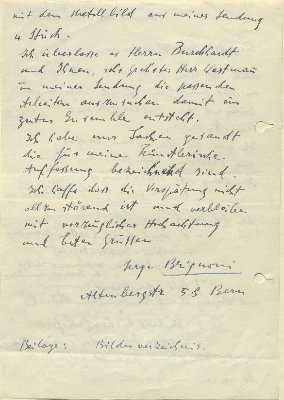 mit dem Metallbild aus meiner Sendung
4 Stück.
Ich überlasse es Herrn Burckhardt
und Ihnen, sehr geehrter Herr Wartmann
in meiner Sendung die passenden
Arbeiten auszusuchen damit ein
gutes Ensemble entsteht.
Ich habe nur Sachen gesandt
die für meine künstlerische
Auffassung bezeichnend sind.
Ich hoffe dass die Verspätung nicht
allzu störend ist und verbleibe
mit vorzüglicher Hochachtung
und besten Grüssen
Serge Brignoni
Altenbergstr 58 Bern
Beilage: Bilderverzeichnis.